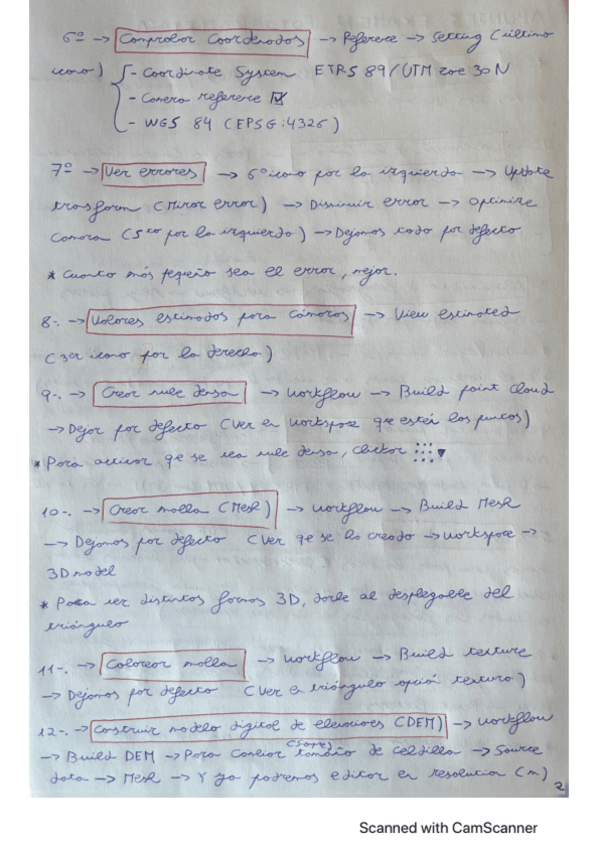 6º → Comprobar Coordenadas → Reference → Setting (último
icono) - Coordinate System ETRS 89/UTM zoe 30N
- Camera reference ☑
- WGS 84 (EPSG:4326)
7º → Ver errores → 6º icono por la izquierda → Update
trasform (Mirar error) → Disminuir error → Optimize
Camara (5to por la izquierda) → Dejamos todo por defecto
* Cuanto más pequeño sea el error, mejor.
8-. → Valores estimados para Cámaras → View estimated
(3er icono por la derecha)
9-. → Crear nube densa → Workflow → Build point Cloud
→ Dejar por defecto (Ver en Workspace que estén los puntos)
* Para activar qe se vea nube densa, clickar
10-. → Crear malla (Mesh) → Workflow → Build Mesh
→ Dejamos por defecto (Ver qe se ha creado → Workspace →
3D model
* Para ver distintas formas 3D, darle al desplegable del
triángulo
11-. → Colorear malla → Workflow → Build texture
→ Dejamos por defecto (Ver en triángulo opción textura)
12-. → Construir modelo digital de elevaciones (DEM) → Workflow
→ Build DEM → Para cambiar tamaño de celdilla → Source
data → Mesh → Y ya podremos editar en resolution (m)
2
Scanned with CamScanner